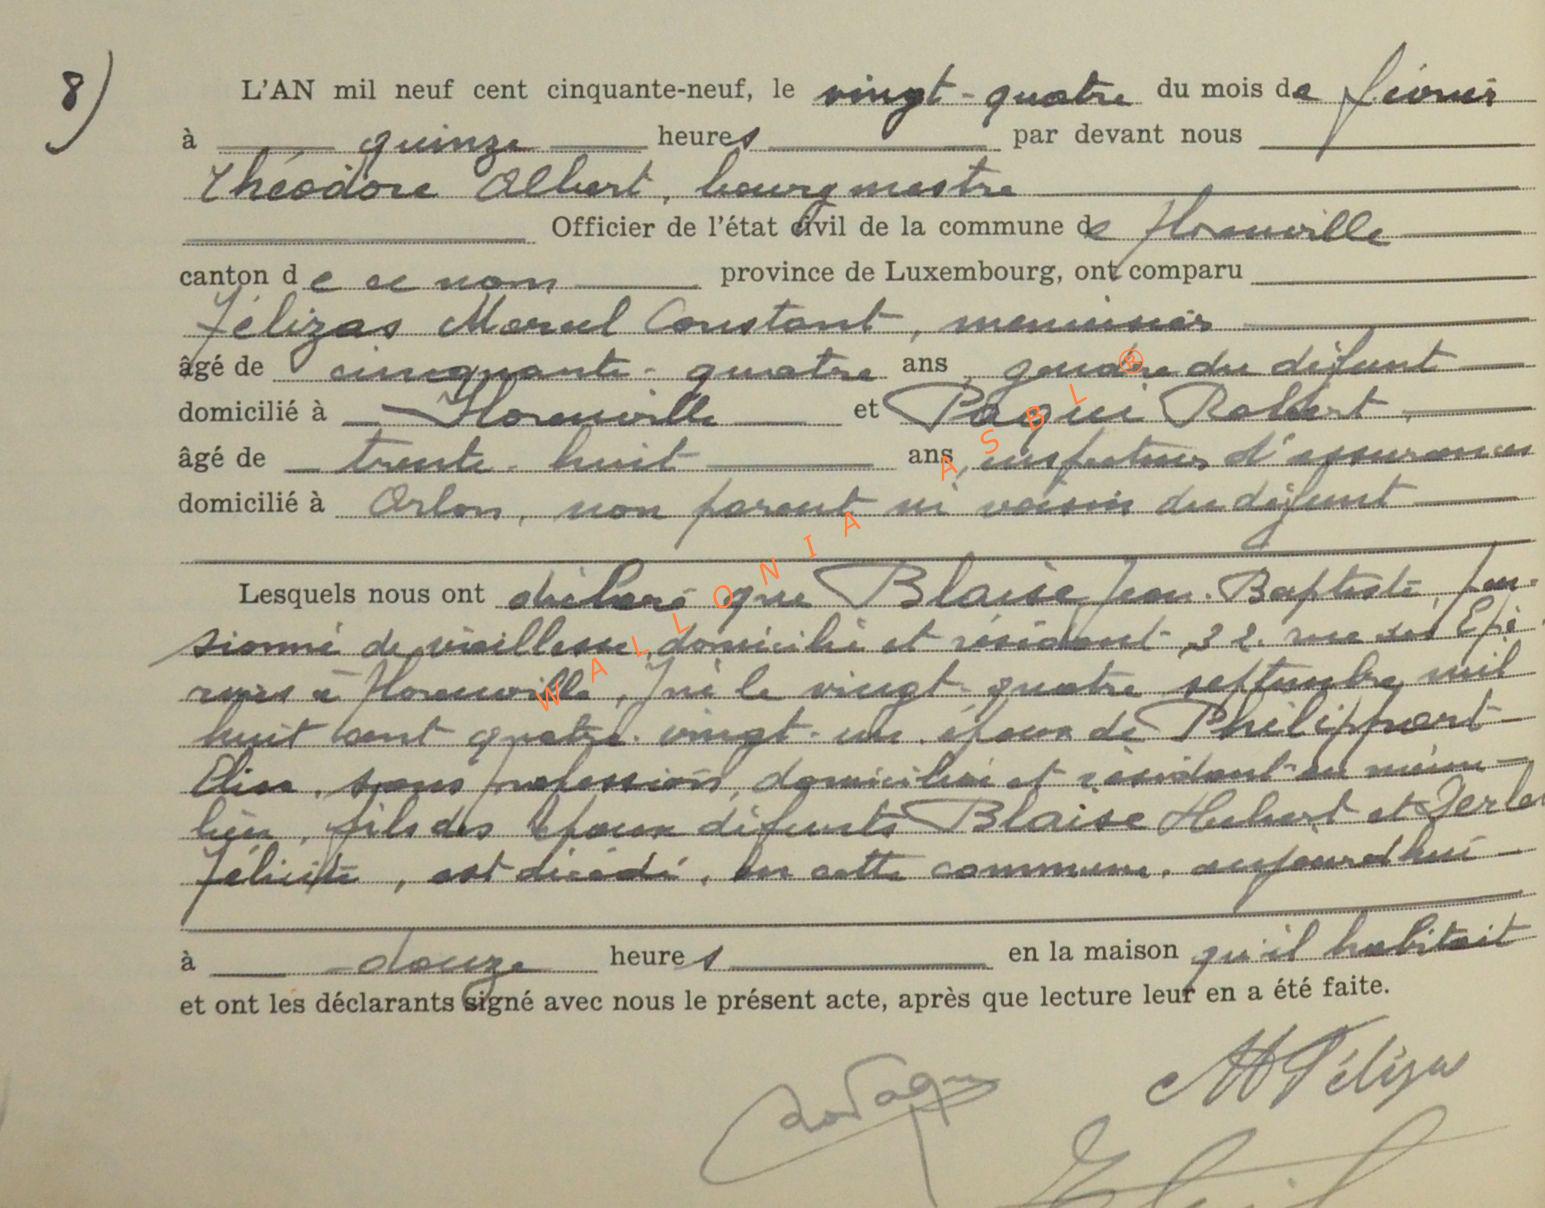 8)
L'AN mil neuf cent cinquante-neuf, le vingt-quatre du mois de février
à quinze heures par devant nous
Théodore Albert, bourgmestre
Officier de l'état civil de la commune de Florenville
canton de ce nom province de Luxembourg, ont comparu
Félizas Marcel Constant, menuisier
âgé de cinquante-quatre ans, gendre du défunt
domicilié à Florenville et Paqui Robert,
âgé de trente-huit ans, inspecteur d'assurances
domicilié à Arlon, non parent ni voisin du défunt
Lesquels nous ont déclaré que Blaise Jean-Baptiste, pen-
sionné de vieillesse, domicilié et résidant 32 rue des Epi-
nes à Florenville, né le vingt-quatre septembre mil
huit cent quatre-vingt-un, époux de Philippart
Elisa, sans profession, domiciliée et résidant au même
lieu, fils des époux défunts Blaise Hubert et
Félicité, est décédé, en cette commune, aujourd'hui
à douze heures en la maison qu'il habitait
et ont les déclarants signé avec nous le présent acte, après que lecture leur en a été faite.
Félizas
WALLONIA ASBL ®